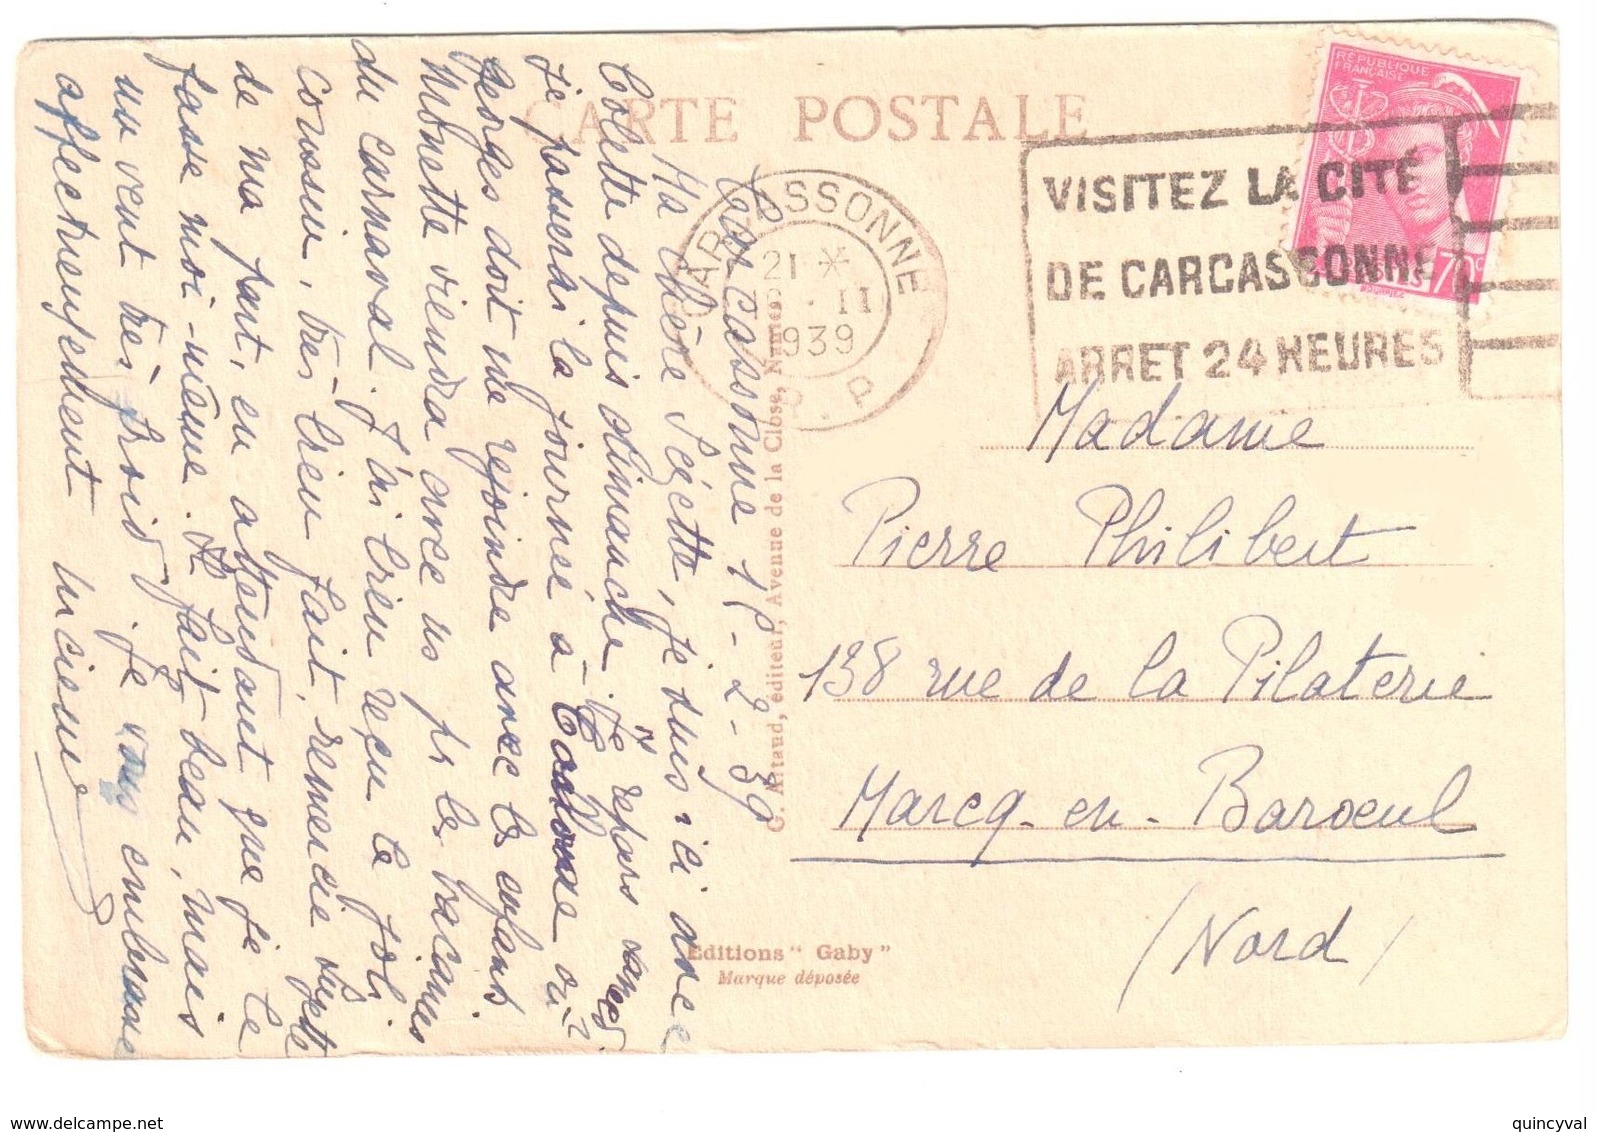 CARTE POSTALE
Carcassonne 1 -2-39
Ma Chère Ségette, je suis ici avec
Colette depuis dimanche. Je repars samedi
je passerai la journée à Toulouse où
Georges doit me rejoindre avec les enfants
Minette viendra avec us pr les vacances
du carnaval. J'ai bien reçu le joli
coussin, très bien fait, remercie
de ma part, en attendant que je le
fasse moi-même. Il fait beau, mais
un vent très froid. Je vous embrasse
affectueusement Lucienne
CARCASSONNE
21 *
II
1939
P. P
VISITEZ LA CITÉ
DE CARCASSONNE
ARRET 24 HEURES
RÉPUBLIQUE
FRANÇAISE
POSTES 70c
G. Artaud, éditeur, Avenue de la Close, Nantes
Madame
Pierre Philibert
138 rue de la Pilaterie
Marcq-en-Baroeul
(Nord)
Editions "Gaby"
Marque déposée
www.delcampe.net
quincyval